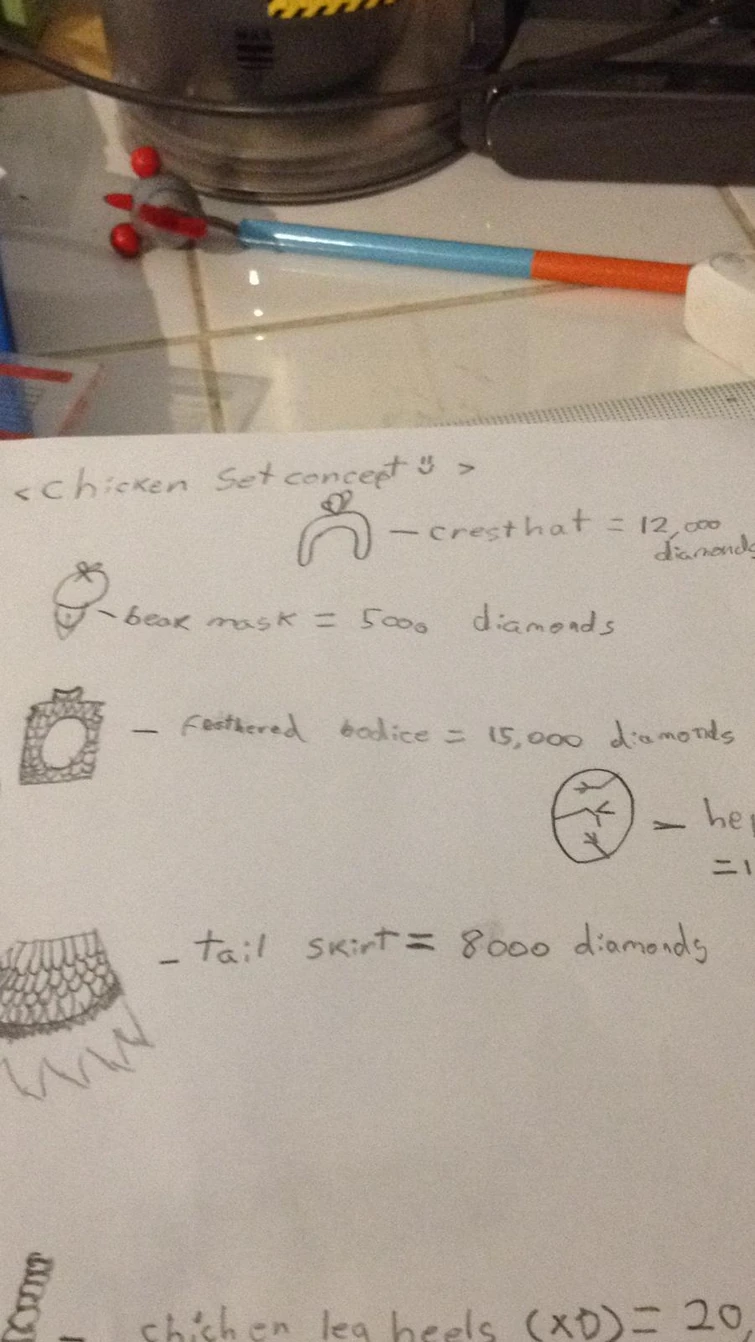 MAX
<Chicken Set concept >
- crest hat = 12,000
diamonds
- beak mask = 5000 diamonds
- Feathered bodice = 15,000 diamonds
- he
= 1
- tail skirt = 8000 diamonds
- chichen leg heels (XD) = 20